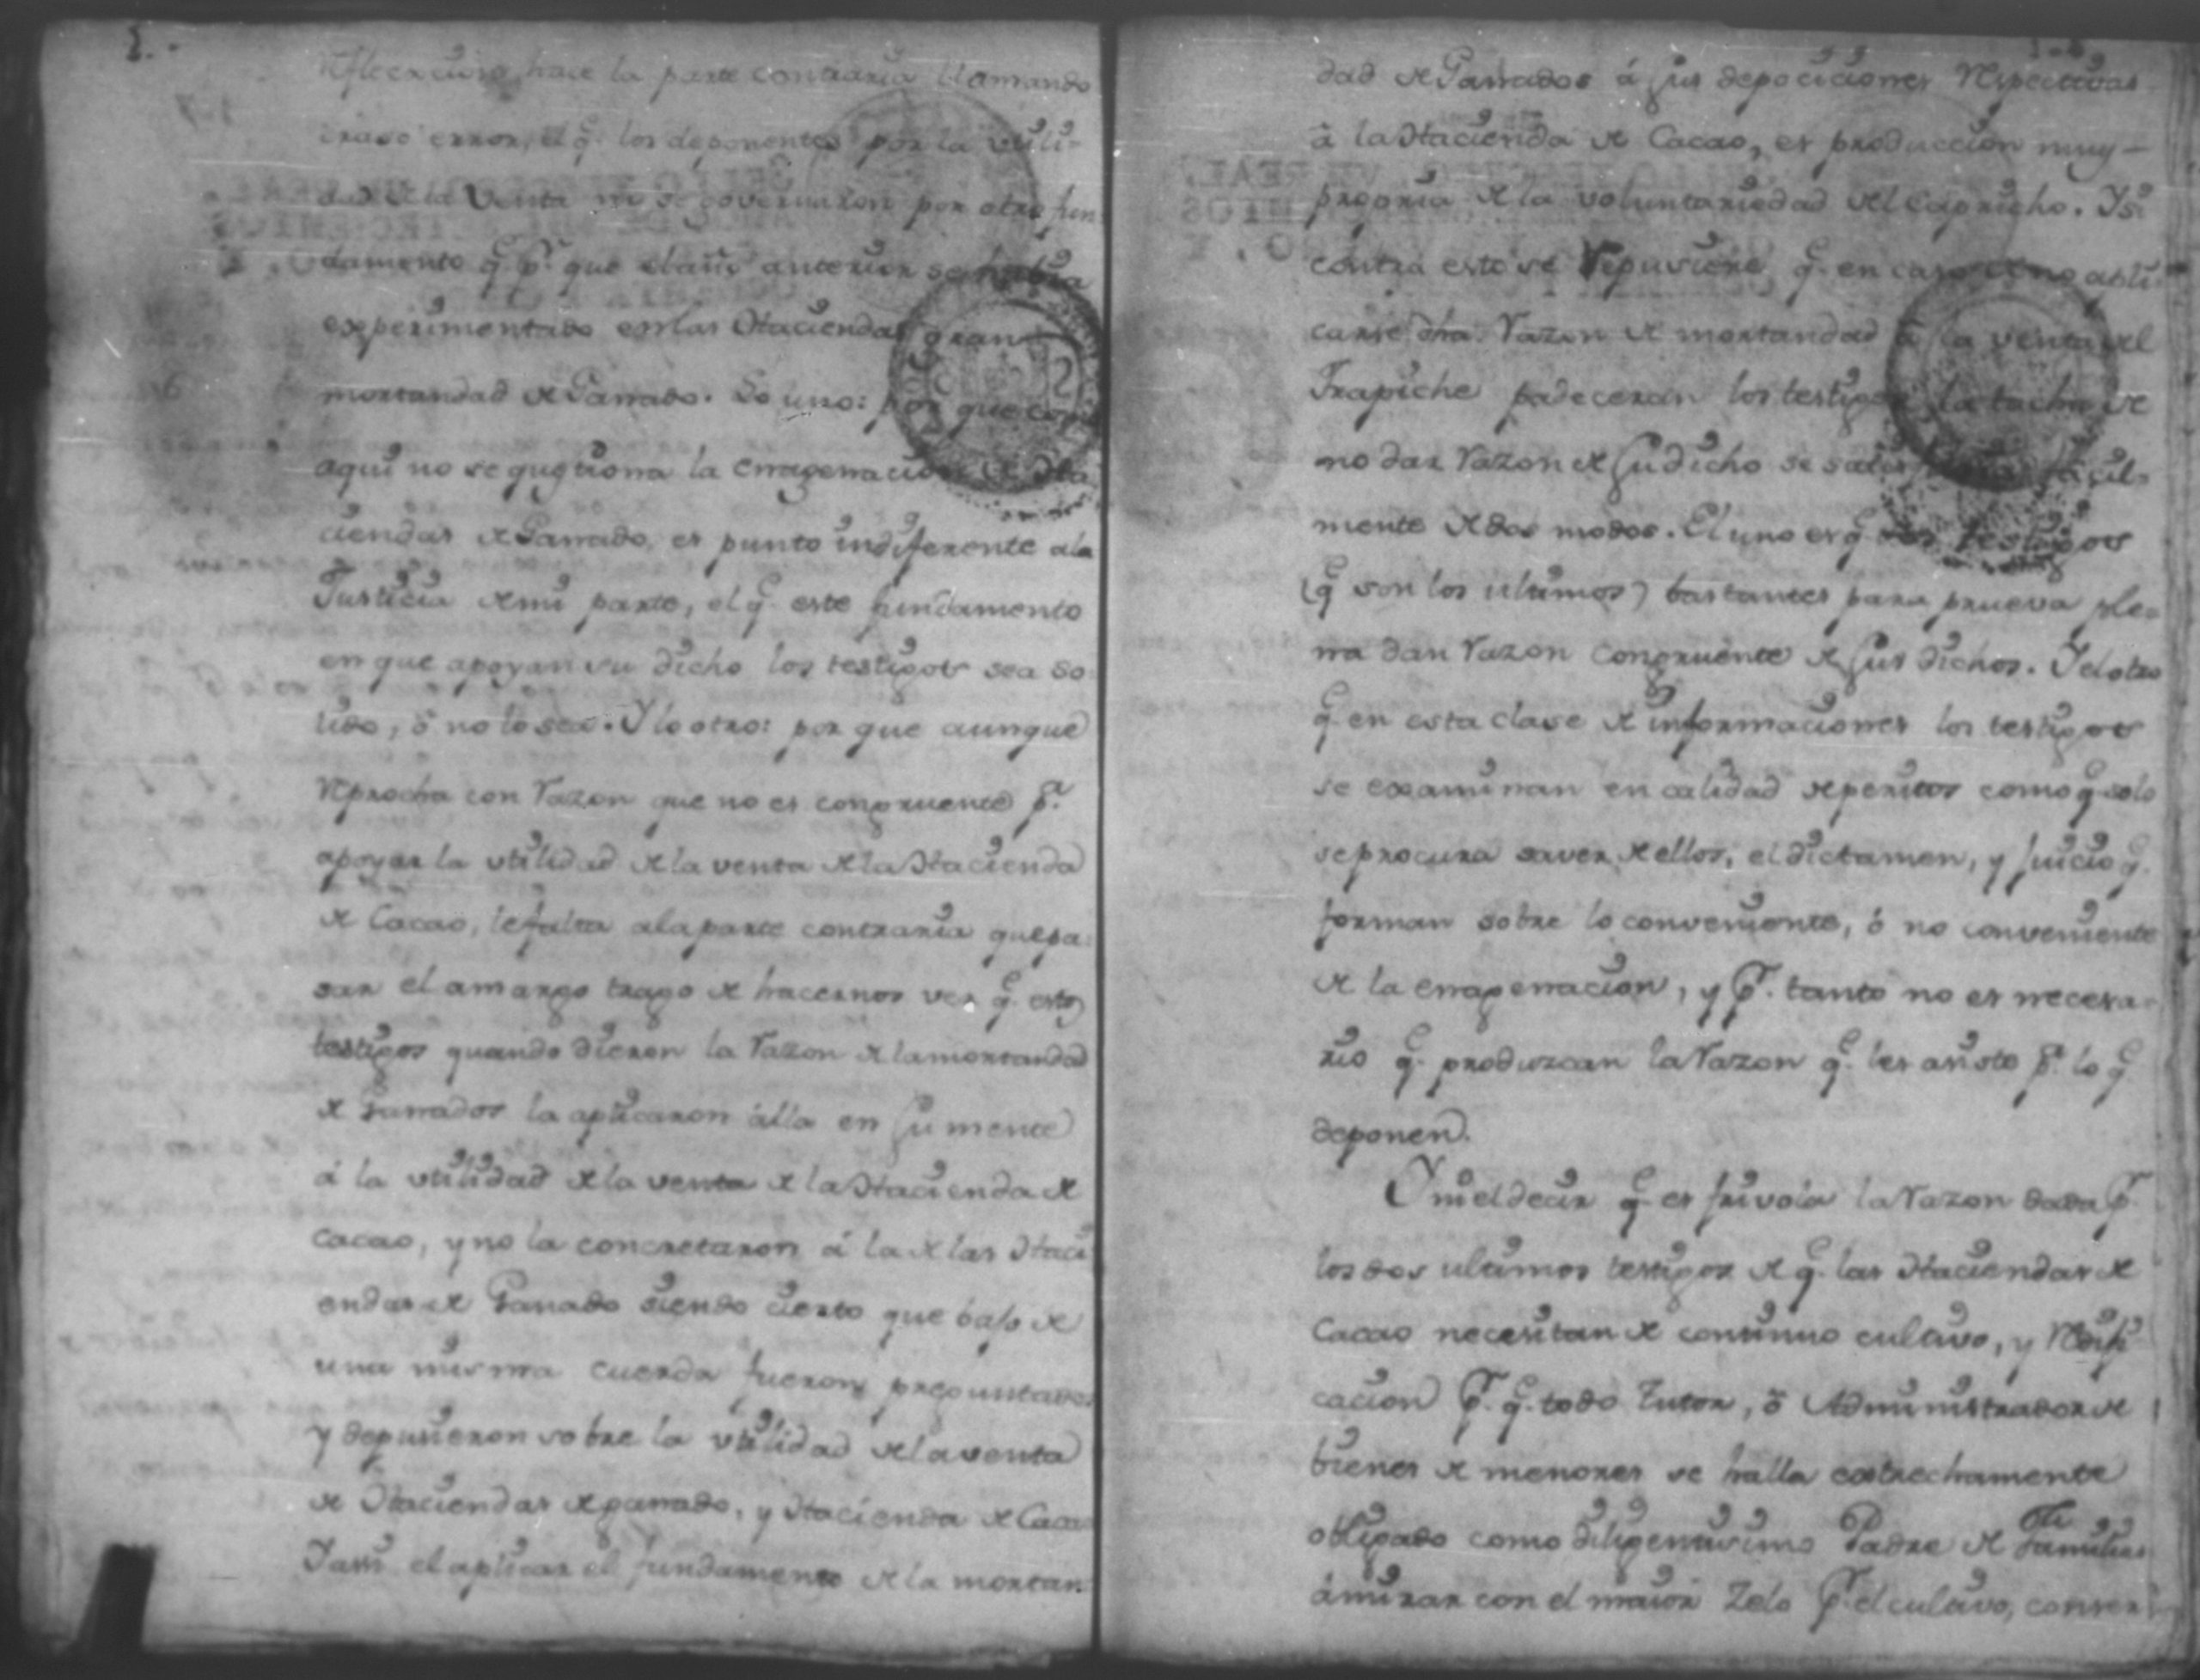 Reflexcion hace la parte contraria llamando
craso error, el q.e los deponentes por la utili-
dad de la Venta no se governaron por otro fun
damento q.e p.r que el año anterior se havia
experimentado en las Haciendas gran
mortandad de Ganado. Lo uno: por que como
aqui no se qugtiona la enagenacion de Ha
ciendas de Ganado, es punto indiferente a la
Justicia de mi parte, el q.e este fundamento
en que apoyan su dicho los testigos sea so-
lido, ó no lo sea. Y lo otro: por que aunque
Reprocha con Razon que no es congruente p.a
apoyar la utilidad de la venta de la Hacienda
de Cacao, le falta a la parte contraria que pa-
sar el amargo trago de hacernos ver q.e estos
testigos quando dieron la Razon de la mortandad
de Ganados la aplicaron alla en su mente
á la utilidad de la venta de la Hacienda de
Cacao, y no la concretaron á la de las Haci
endas de Ganado siendo cierto que bajo de
una misma cuerda fueron preguntados
y depusieron sobre la utilidad de la venta
de Haciendas de ganado, y Hacienda de Cacao
Y assi el aplicar el fundamento de la mortan-
dad de Ganados á sus depociciones Respectivas
á la Hacienda de Cacao, es produccion muy
propria de la voluntariedad del Capricho. Y si
contra esto se Repusiere, q.e en caso de no apli-
carse dha. Razon de mortandad á la venta del
Trapiche padeceran los testigos la tacha de
no dar Razon de su dicho se satisface facil-
mente de dos modos. El uno es q.e dos testigos
(q.e son los ultimos) bastantes para prueva ple-
na dan Razon congruente de sus dichos. Y el otro
q.e en esta clase de informaciones los testigos
se examinan en calidad de peritos como q.e solo
se procura saver de ellos, el dictamen, y juicio q.e
forman sobre lo conveniente, ó no conveniente
de la enagenacion, y p.r tanto no es necesa-
rio q.e produzcan la Razon q.e les asiste p.a lo q.e
deponen.
Y ni el decir q.e es frivola la Razon dada p.r
los dos ultimos testigos de q.e las Haciendas de
Cacao necesitan de continuo cultivo, y Reedifi-
cacion p.r q.e todo Tutor, ó Administrador de
bienes de menores se halla estrechamente
obligado como diligentisimo Padre de Familias
á mirar con el maior Zelo p.r el cultivo, conser